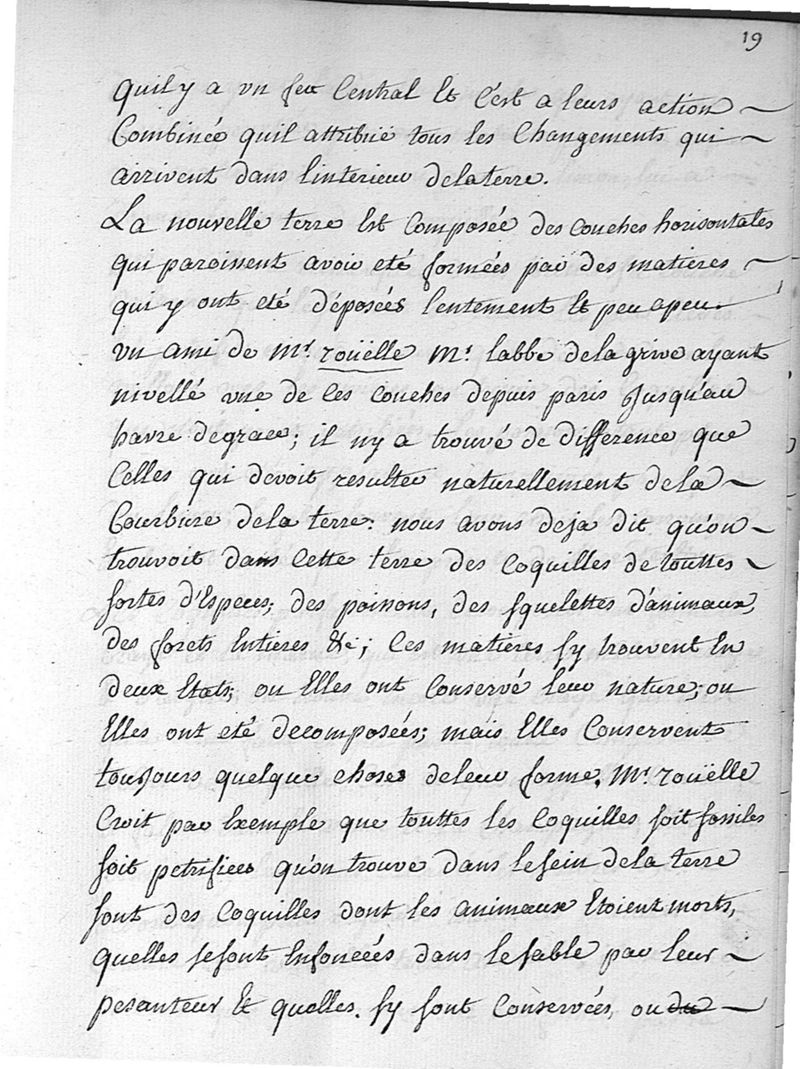 19
quil y a vn feu Central Et c'est a leurs action
Combinée quil attribüe tous les Changements qui
arrivent dans linterieur delaterre.
La nouvelle terre Est Composée des couches horisontales
qui paroissent avoir eté formées par des matieres
qui y ont eté déposées lentement Et peu apeu.
vn ami de Mr. roüelle Mr. labbé delagrive ayant
nivellé vne de Ces couches depuis paris Jusqu'au
havre degrace; il ny a trouvé de difference que
Celles qui devoit resulter naturellement dela
Courbure dela terre. nous avons deja dit qu'on
trouvoit dans Cette terre des Coquilles detouttes
sortes d'Especes; des poissons, des squelettes d'animaux,
des forets Entieres &c; Ces matieres sy trouvent En
deux Etats; ou Elles ont Conservé leur nature; ou
Elles ont eté decomposées; mais Elles Conservent
toujours quelque choses deleur forme. Mr. roüelle
Croit par Exemple que touttes les Coquilles soit fossiles
soit petrifiees qu'on trouve dans lesein dela terre
sont des Coquilles dont les animaux Etoient morts,
quelles sesont Enfoncées dans lesable par leur
pesanteur Et quelles. sy sont Conservées, ou